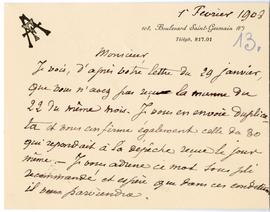 1er Février 1903
101, Boulevard Saint-Germain (6e)
Téléph. 817.01
13.
Monsieur
Je vois, d'après votre lettre du 29 janvier,
que vous n'avez pas reçu la mienne du
22 du même mois. Je vous en envoie duplica
ta et vous en ferme également celle du 30
qui répondait à la dépêche reçue le jour
même. — Je vous adresse ce mot sous pli
recommandé et espère que dans ces conditions
il vous parviendra.